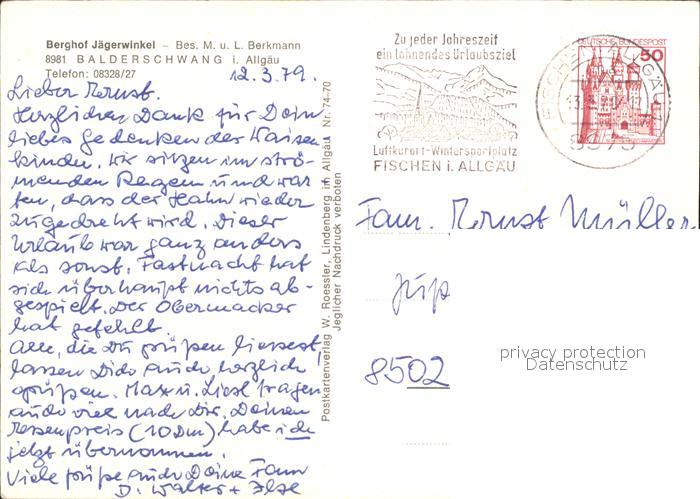 Berghof Jägerwinkel – Bes. M. u. L. Berkmann
8981 BALDERSCHWANG i. Allgäu
Telefon: 08328/27
12.3.79.
Lieber Ernst.
Herzlichen Dank für Dein
liebes Gedenken der Waisen-
kinder. Wir sitzen im strö-
menden Regen und war
ten, dass der Hahn wieder
zugedreht wird. Dieser
Urlaub war ganz anders
als sonst. Fastnacht hat
sich überhaupt nichts ab-
gespielt. Der Obermacker
hat gefehlt.
Alle, die Du grüßen liessest,
lassen Dich auch herzlich
grüßen. Max u. Liesl fragen
auch viel nach Dir. Deinen
preis (10 DM) habe ich
jetzt übernommen.
Viele Grüße auch Deine Fam
D. Walter + Ilse
Postkartenverlag W. Roessler, Lindenberg im Allgäu, Nr. 74-70
Jeglicher Nachdruck verboten
Zu jeder Jahreszeit
ein lohnendes Urlaubsziel
Luftkurort-Wintersportplatz
FISCHEN i. ALLGÄU
DEUTSCHE BUNDESPOST
50
FISCHEN i. ALLGÄU
8975
Fam. Ernst Müller
8502
privacy protection
Datenschutz